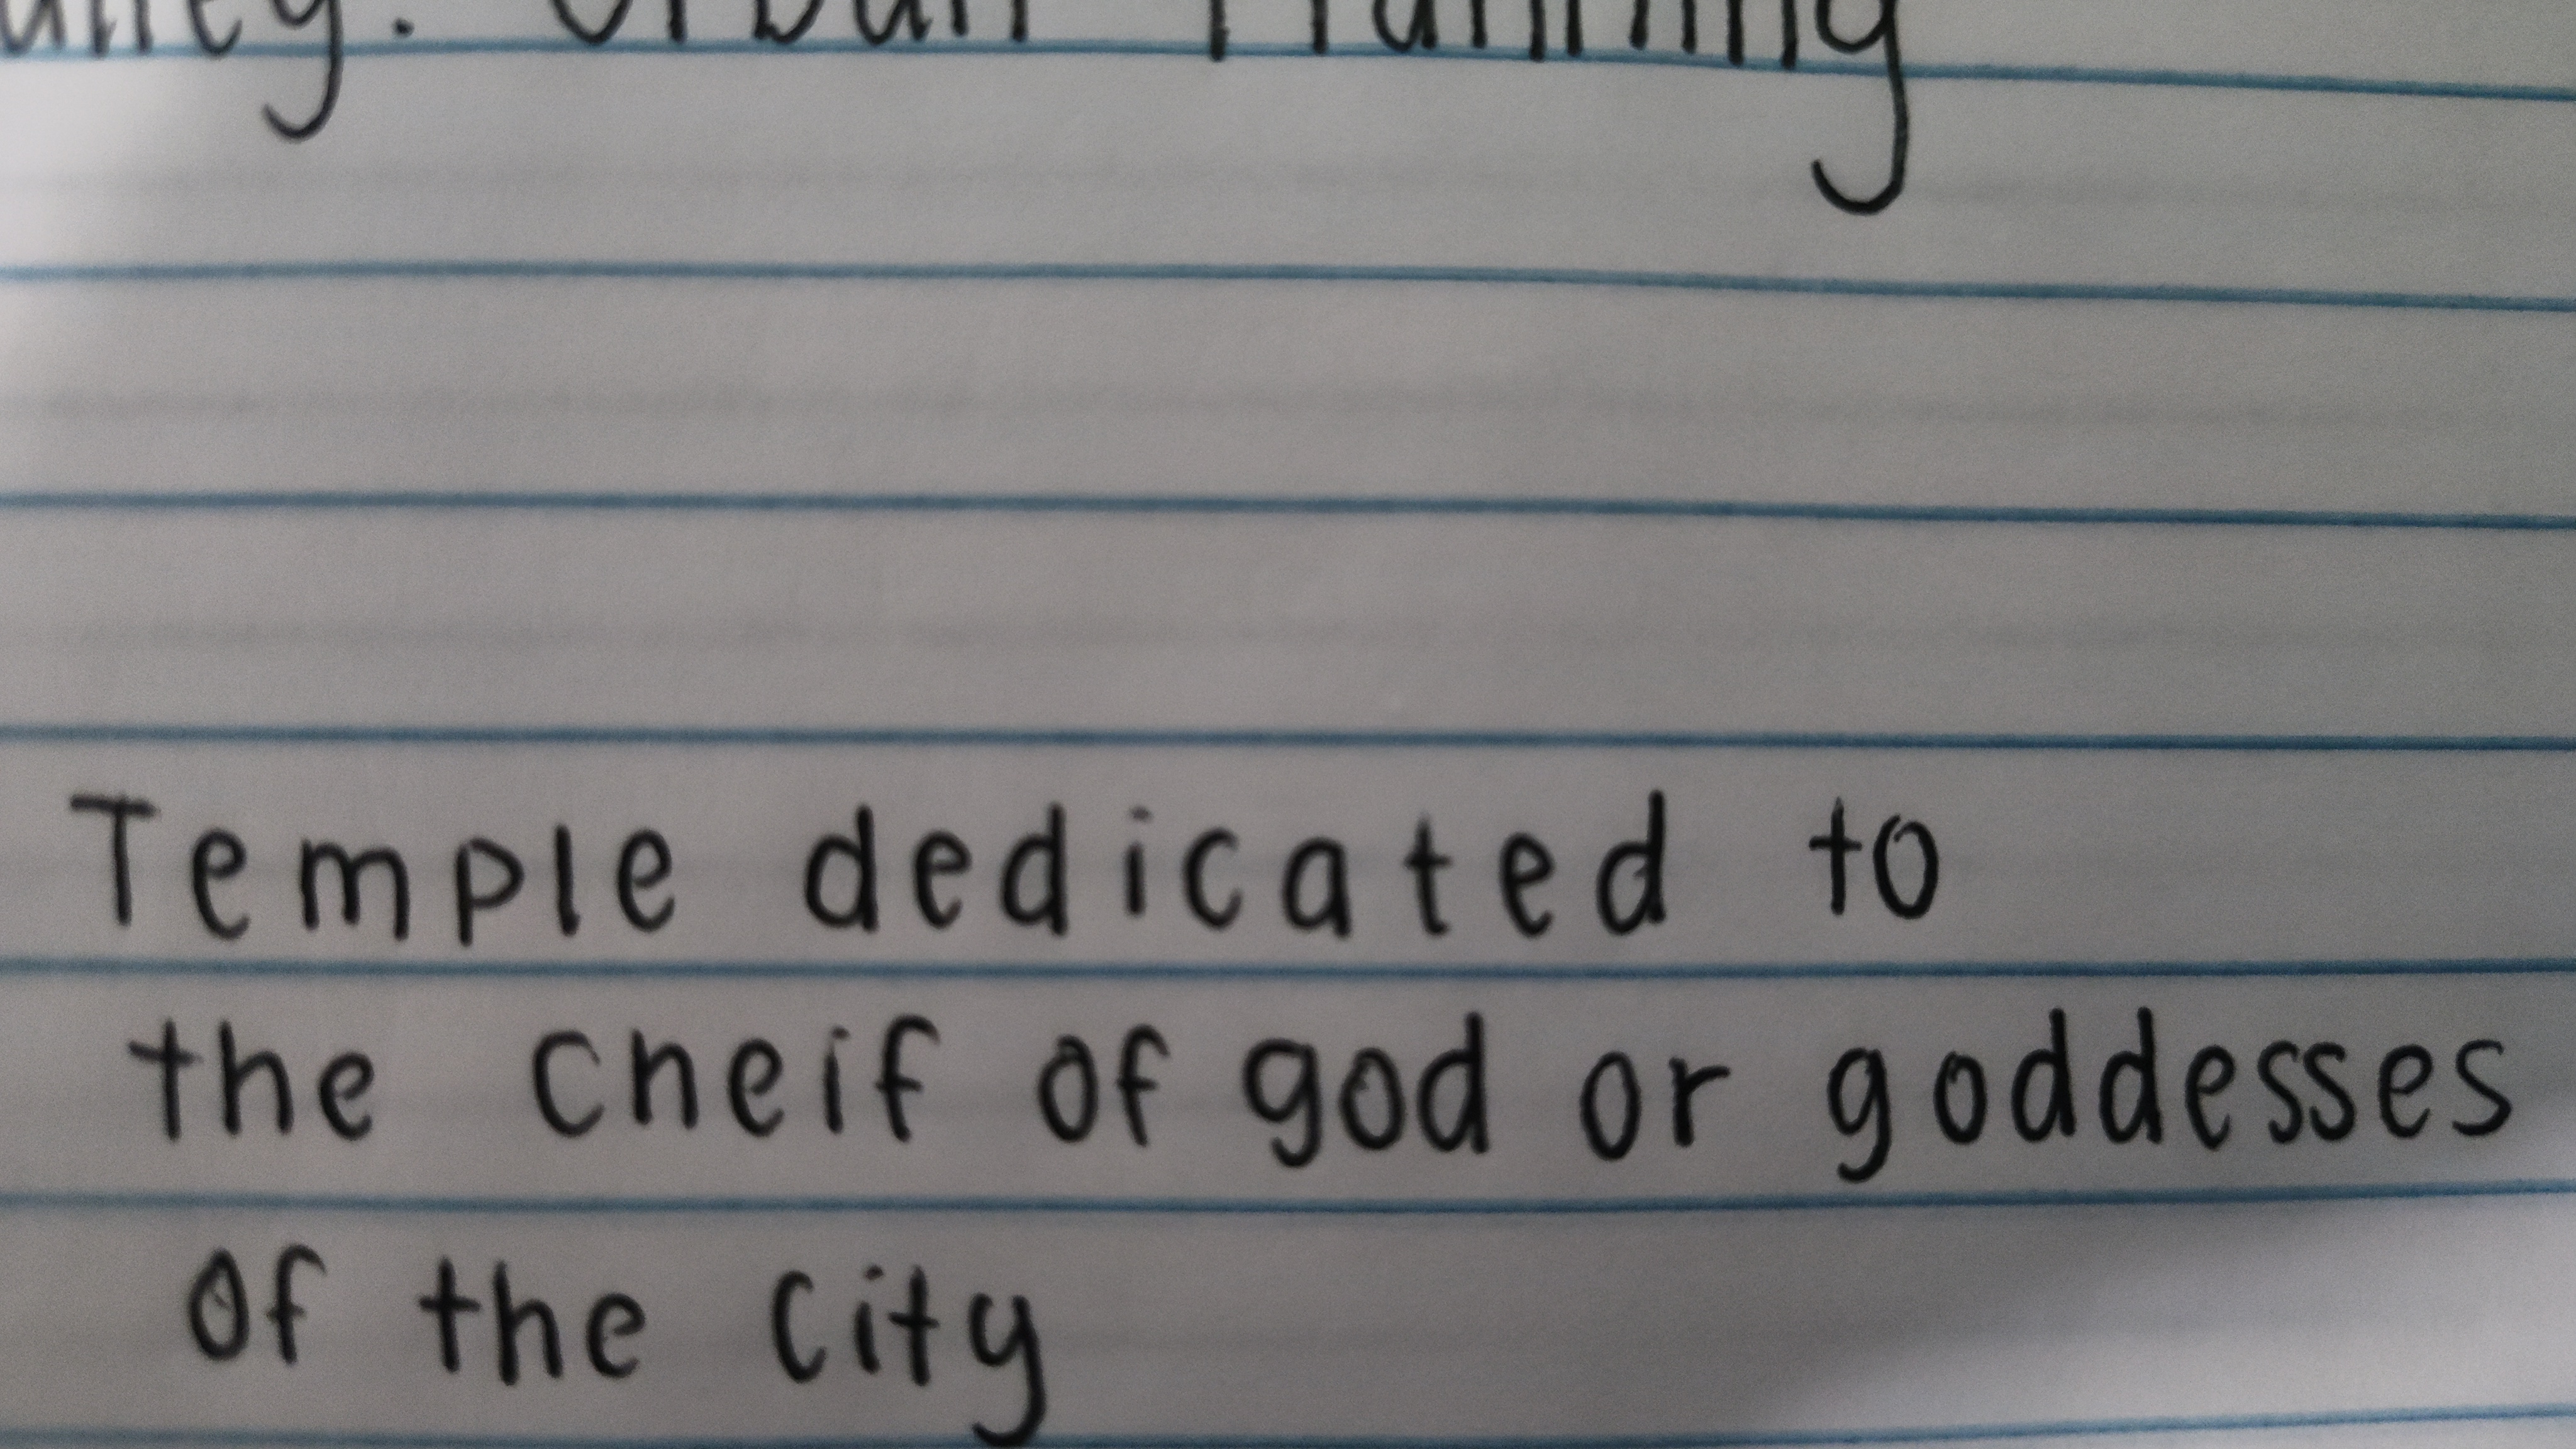 Urban Planning
Temple dedicated to
the cheif of god or goddesses
of the city